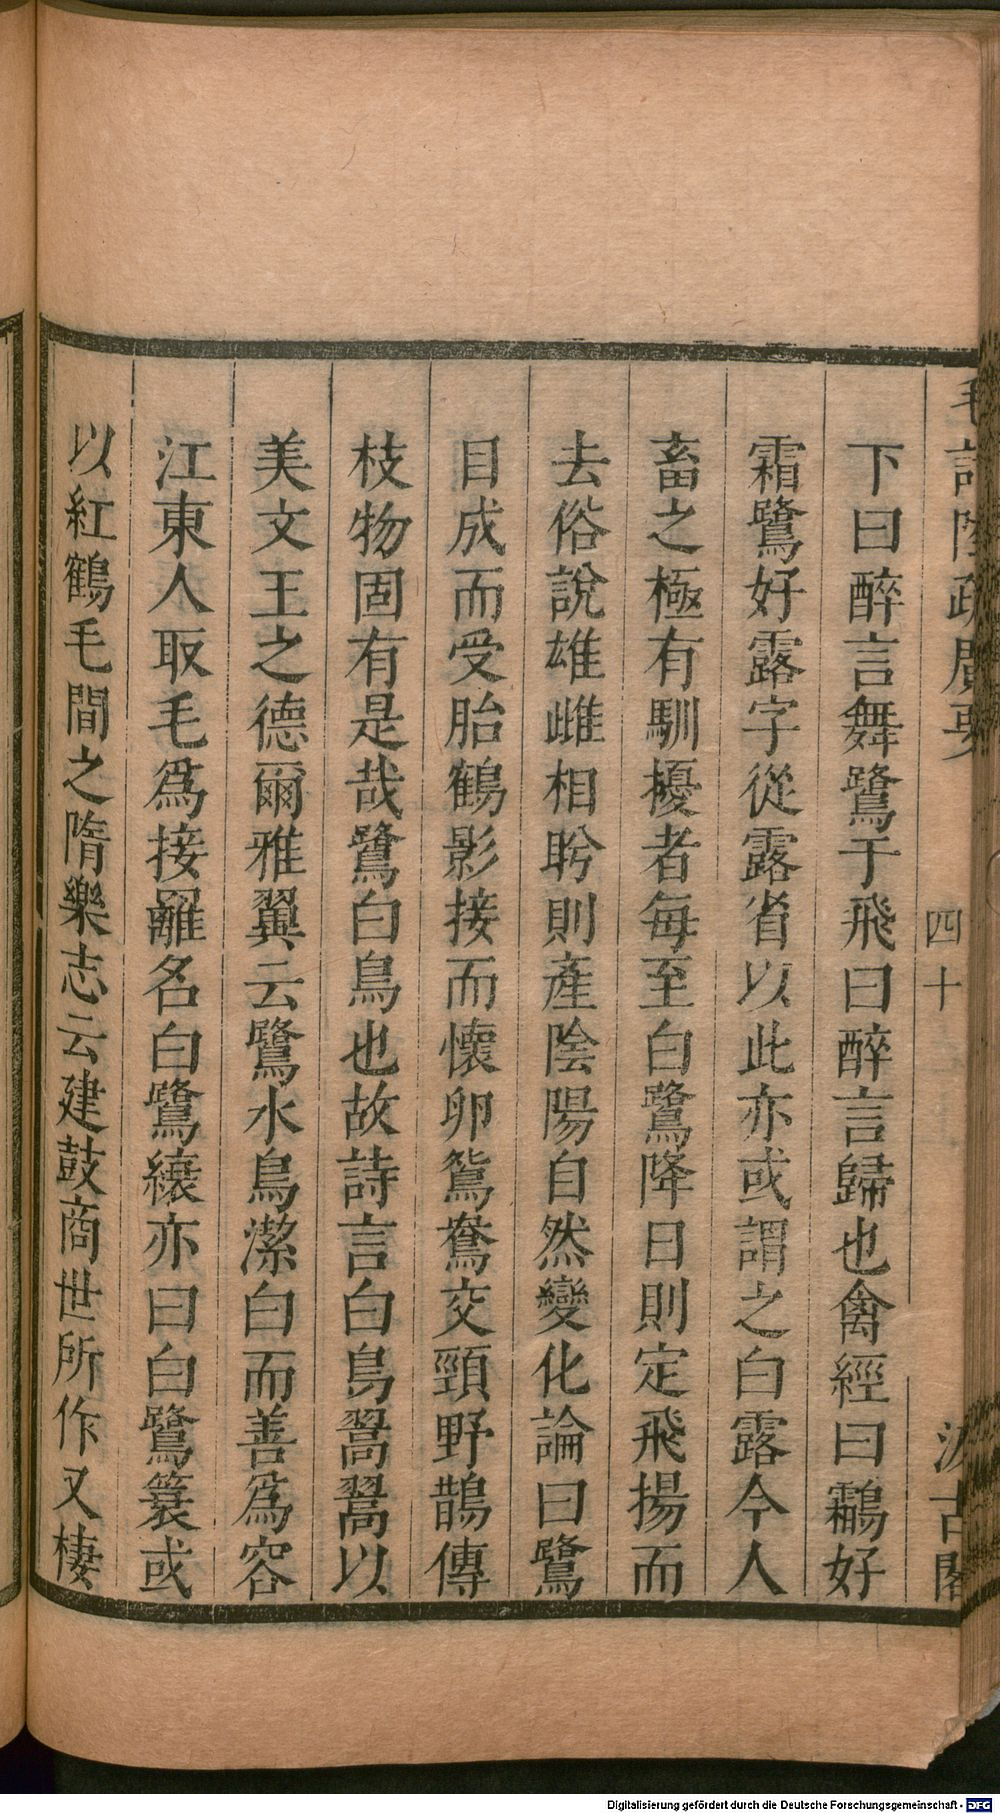 毛詩陸疏廣要
四十
汲古閣
下曰醉言舞鷺于飛曰醉言歸也禽經曰鸘好
霜鷺好露字從露省以此亦或謂之白露今人
畜之極有馴擾者每至白鷺降日則定飛揚而
去俗說雄雌相盻則產陰陽自然變化論曰鷺
目成而受胎鶴影接而懷卵鴛鴦交頸野鵲傳
枝物固有是哉鷺白鳥也故詩言白鳥翯翯以
美文王之德爾雅翼云鷺水鳥潔白而善爲容
江東人取毛爲接䍦名白鷺縗亦曰白鷺簑或
以紅鶴毛間之隋樂志云建鼓商世所作又棲
Digitalisierung gefördert durch die Deutsche Forschungsgemeinschaft - DFG